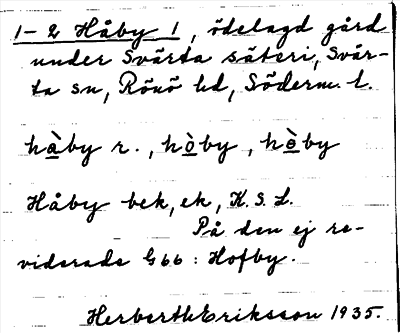 1-2 Håby 1, ödelagd gård
under Svärta säteri, Svär-
ta sn, Rönö hd, Söderm. l.
hàby r., hòby, hòby
Håby bek, ek, K.S.L.
På den ej re-
viderade G66: Hofby.
Herbert Eriksson 1935.